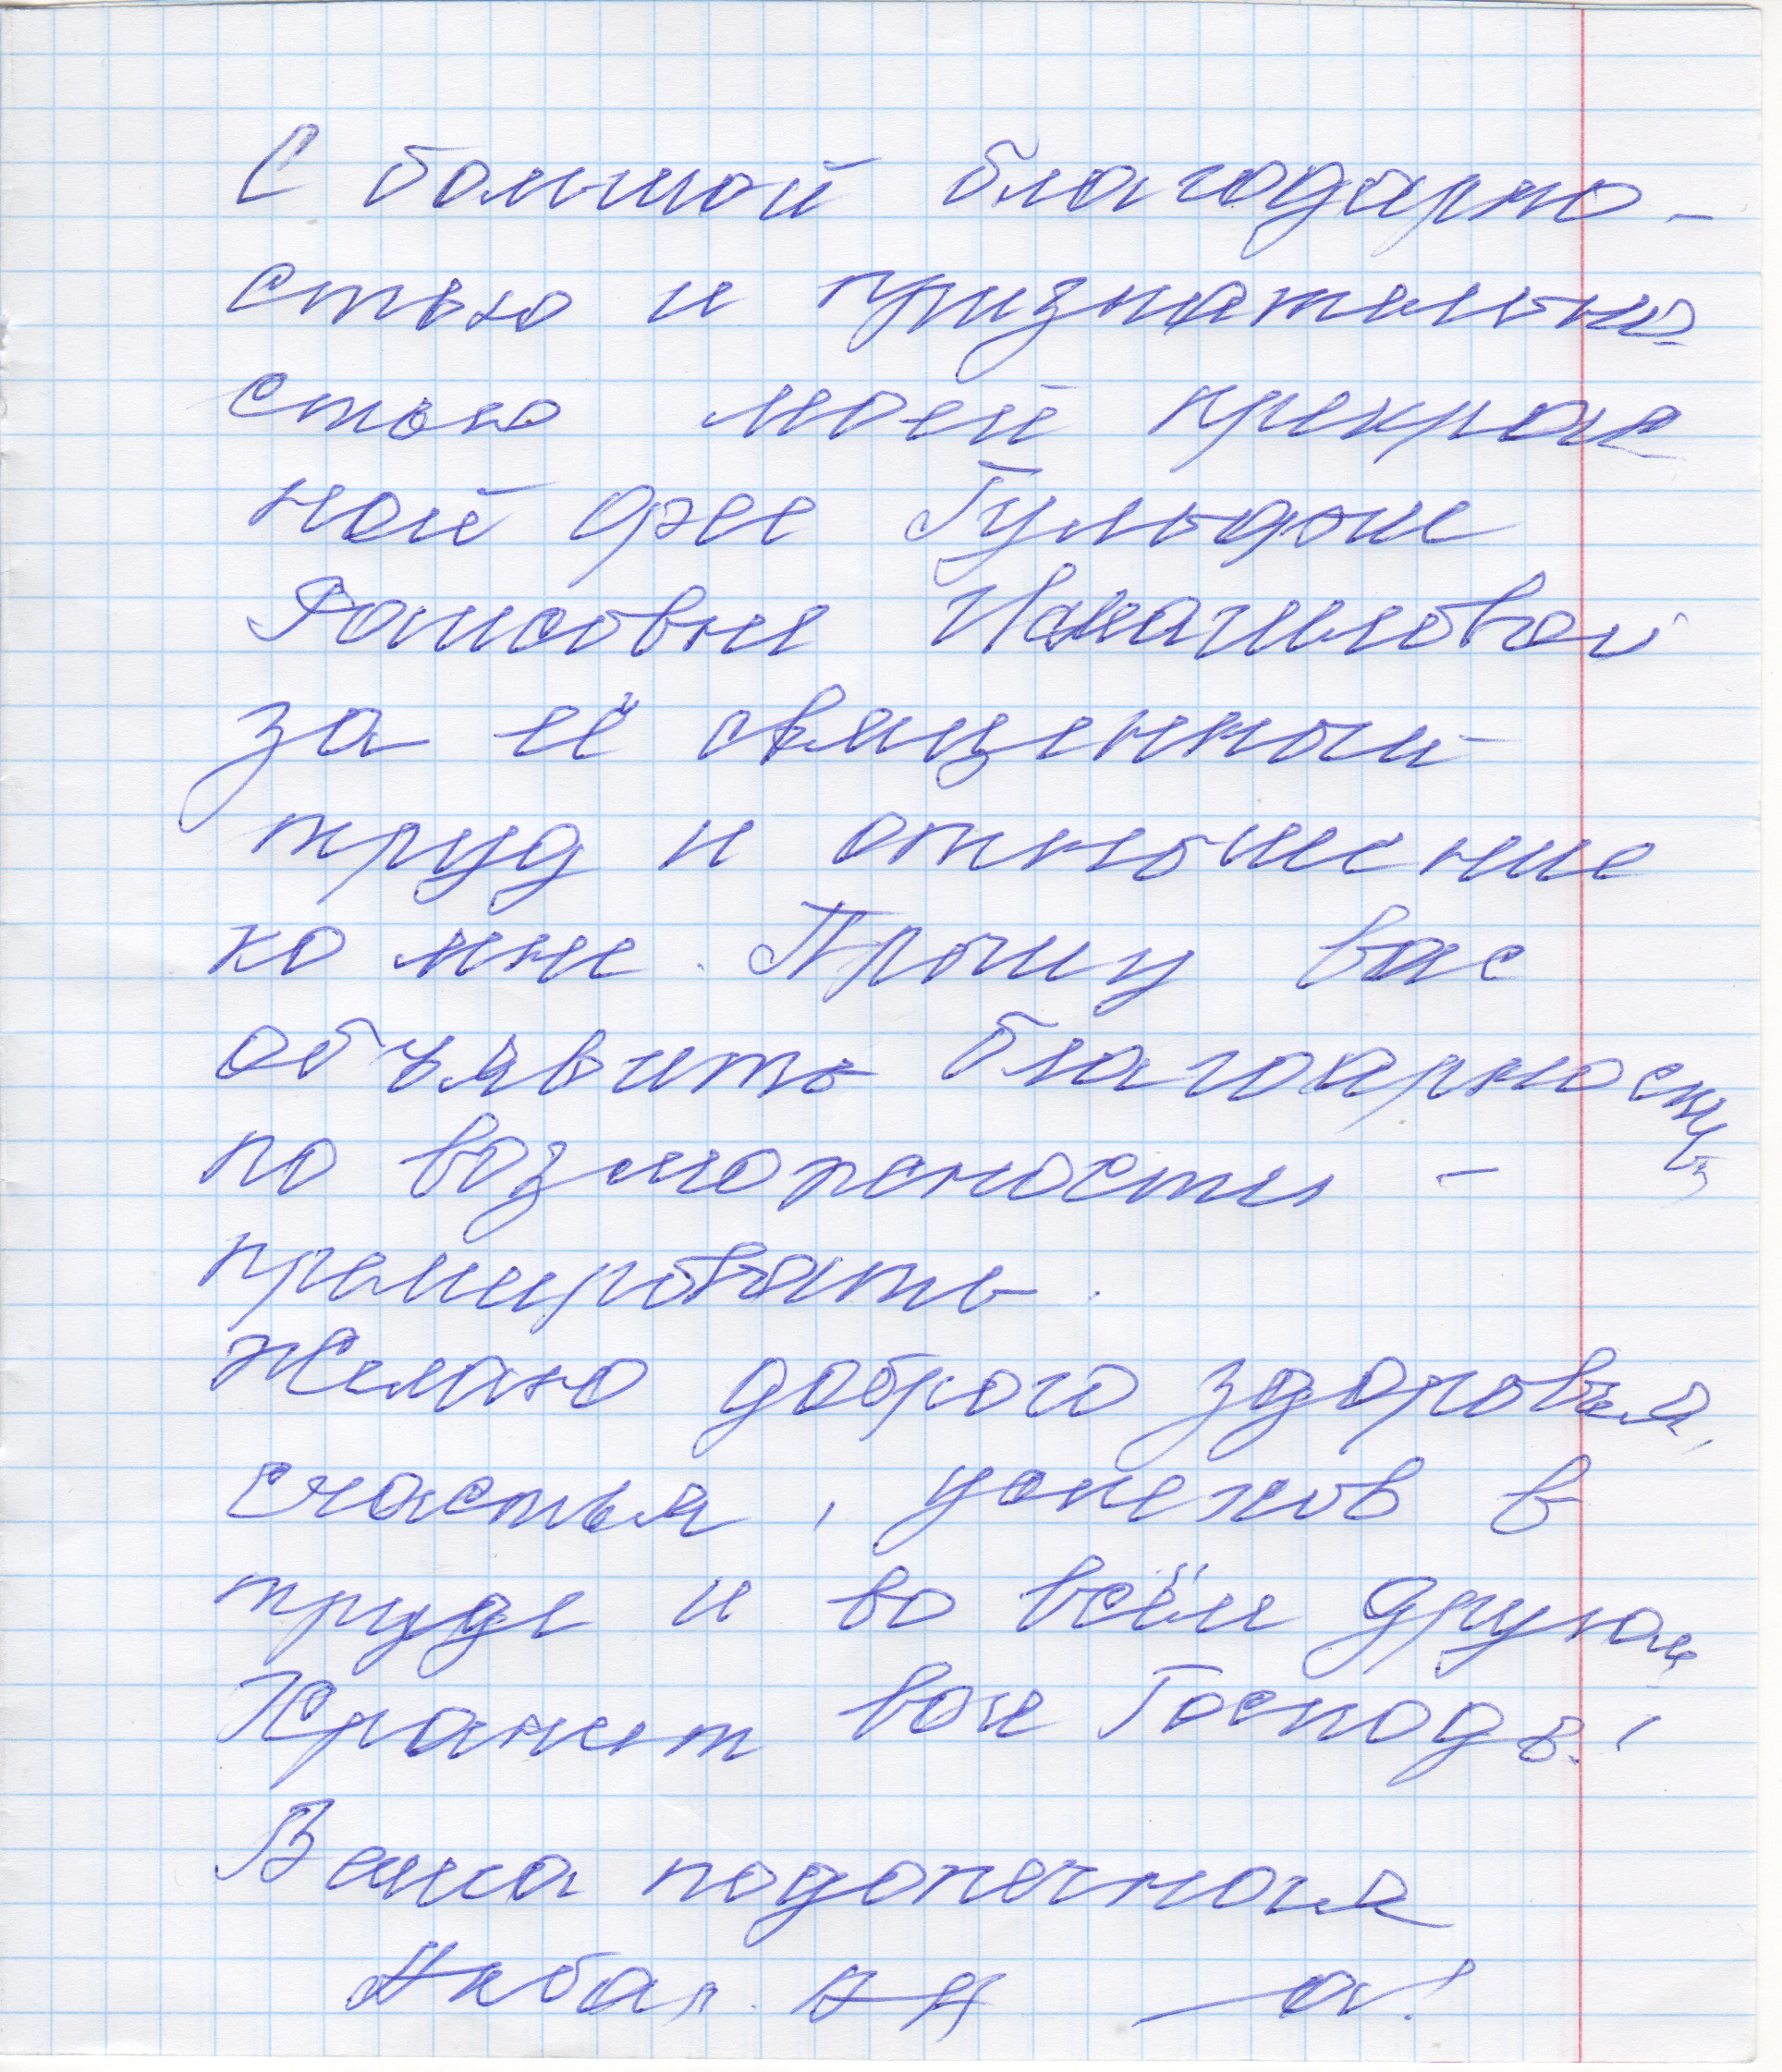 С большой благодарно-
стью и признательно-
стью моей прекрас
ной фее Гульфие
Раисовне Исмагиловой
за её священный
труд и отношение
ко мне. Прошу вас
объявить благодарность,
по возможности -
премировать.
Желаю доброго здоровья,
счастья, успехов в
труде и во всём другом
Хранит вас Господь!
Ваша подопечная